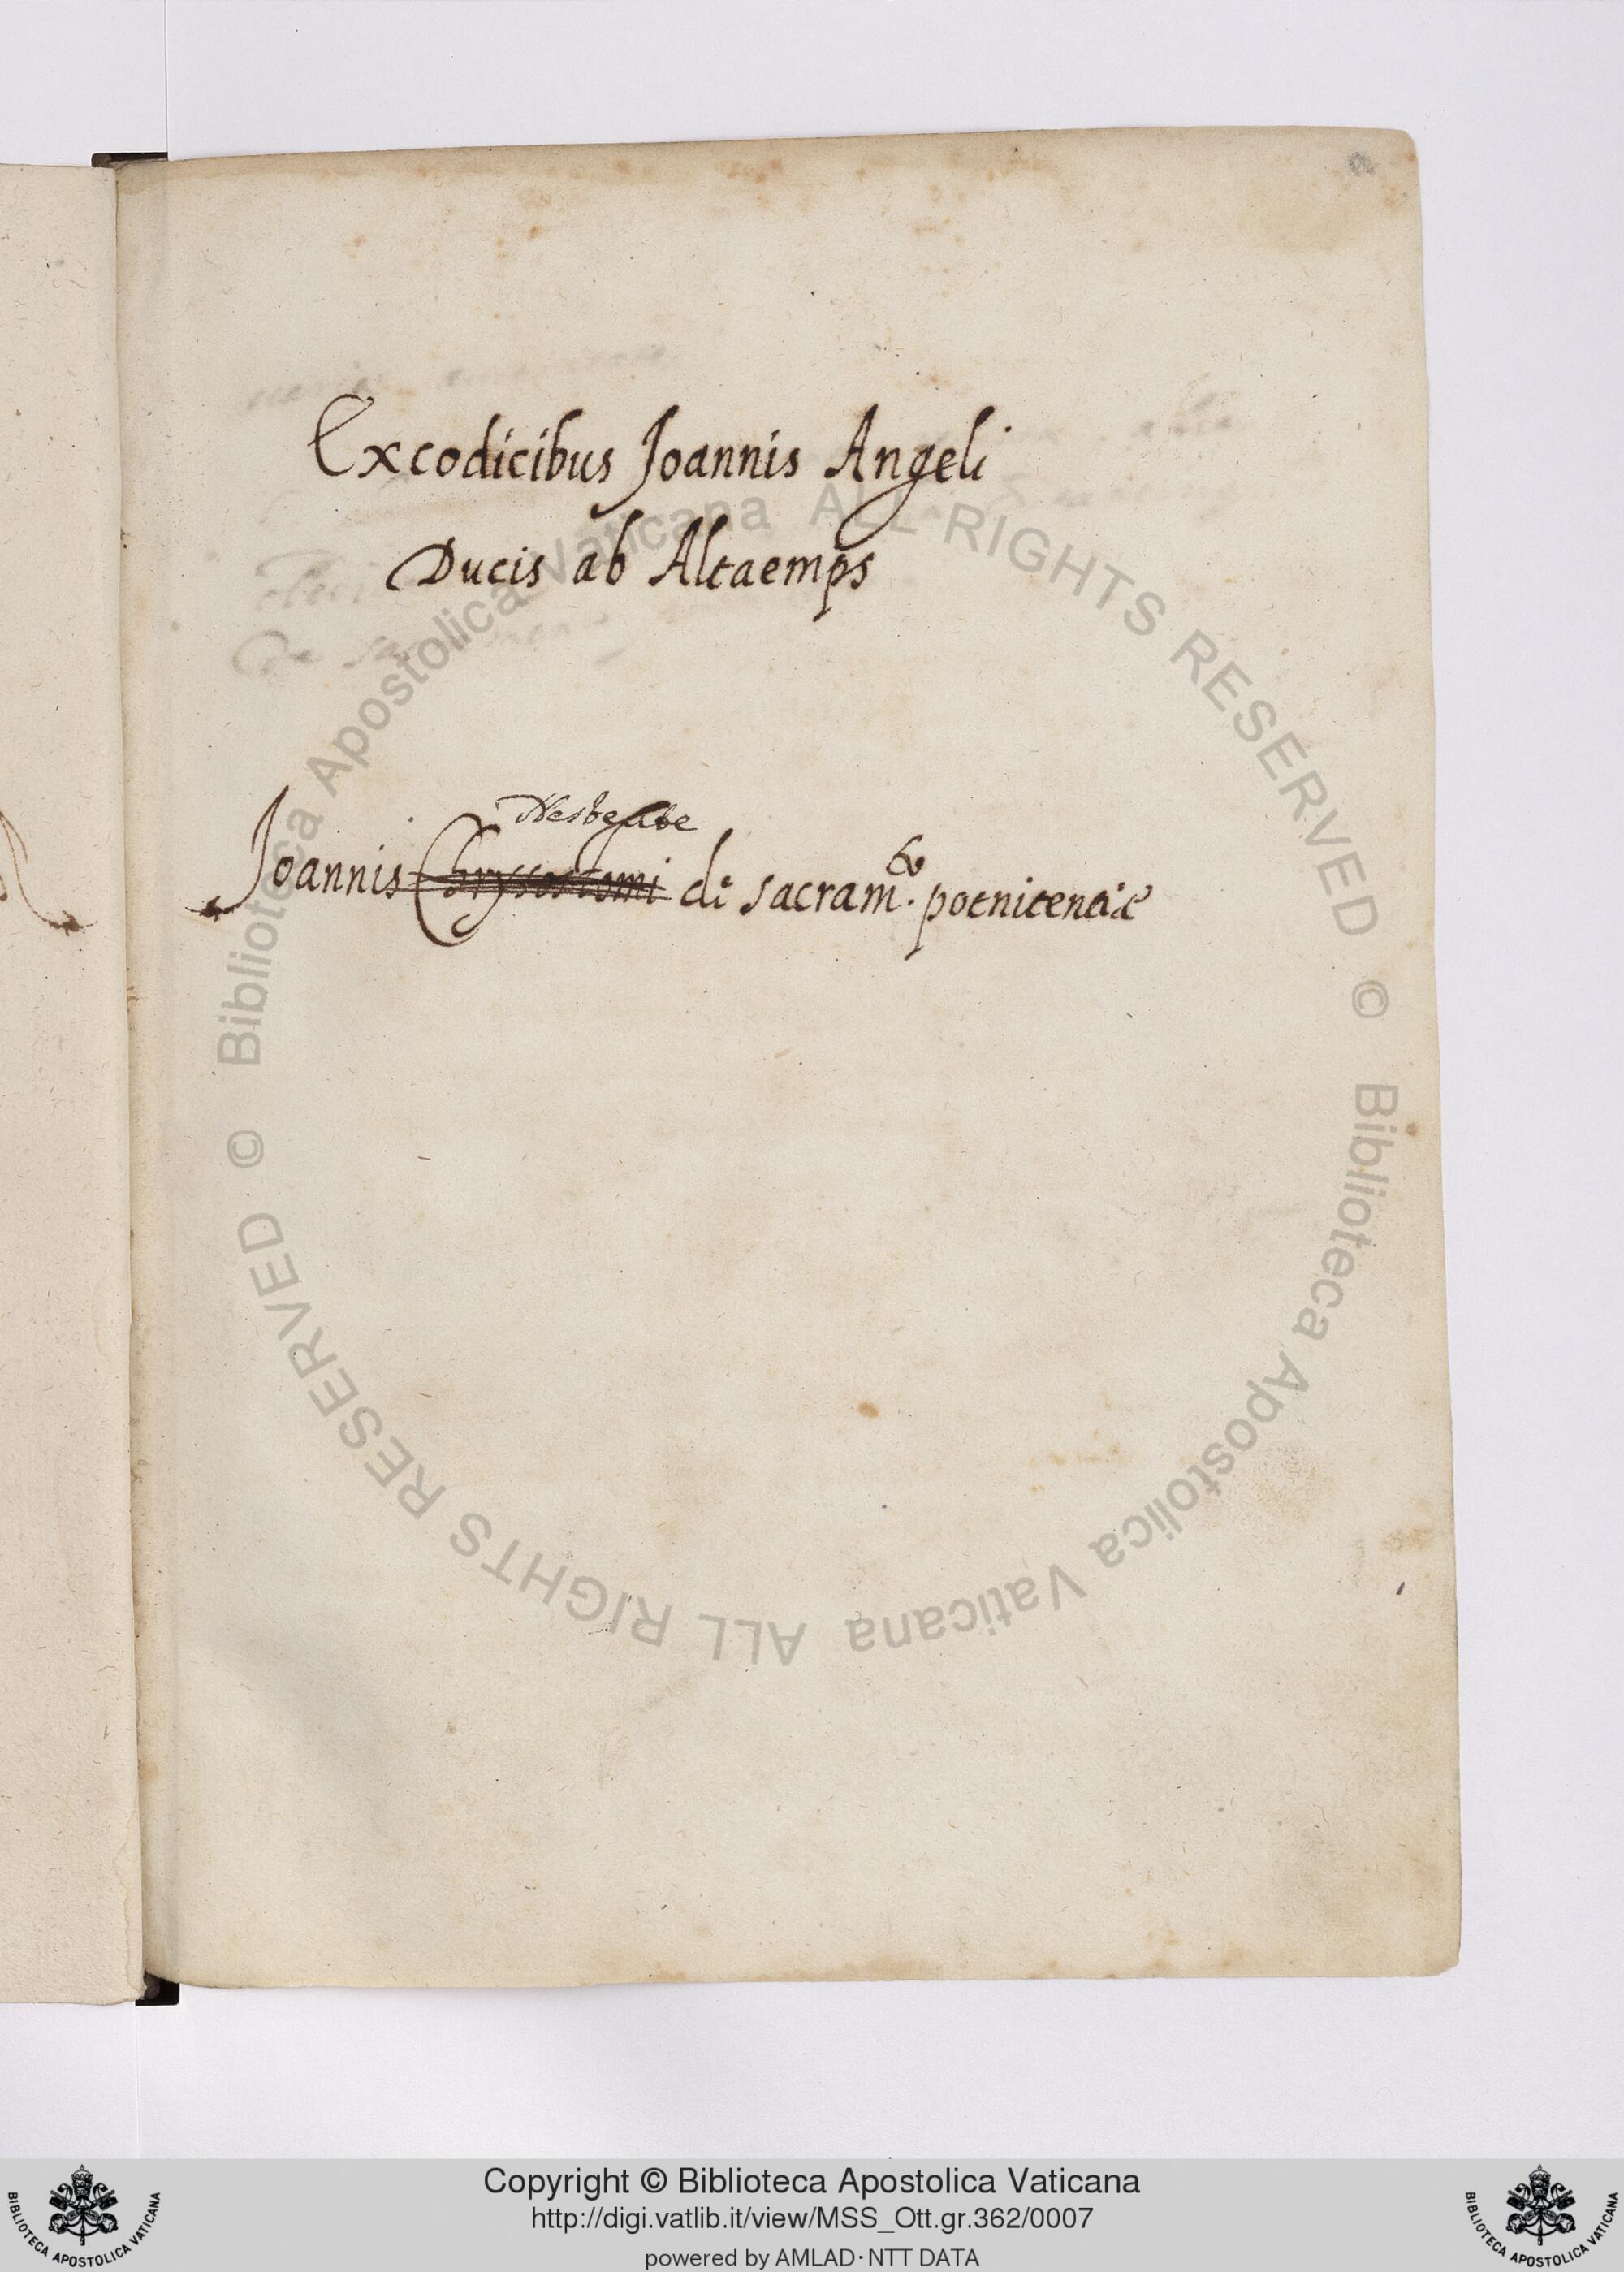 a
Ex codicibus Joannis Angeli
Ducis ab Altaemps
Nesteute
Joannis Chrysostomi de sacram.to poenitentiae
© Biblioteca Apostolica Vaticana ALL RIGHTS RESERVED
© Biblioteca Apostolica Vaticana ALL RIGHTS RESERVED
Copyright © Biblioteca Apostolica Vaticana
http://digi.vatlib.it/view/MSS_Ott.gr.362/0007
powered by AMLAD·NTT DATA
BIBLIOTECA APOSTOLICA VATICANA
BIBLIOTECA APOSTOLICA VATICANA